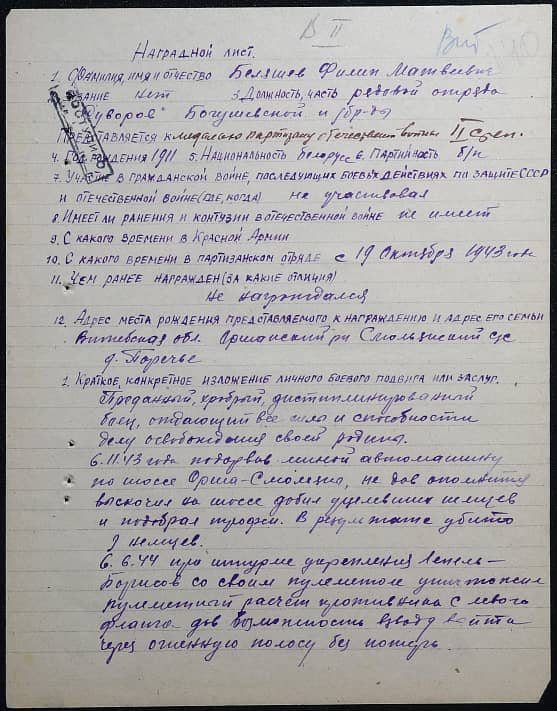 В II
Вит
Наградной лист.
1. Фамилия, имя и отчество Беляшев Филип Матвеевич
звание нет 3. Должность, часть рядовой отряда
"Суворов" Богушевской п/бр-ды
Представляется к медалью партизану отечественной войны II степ.
4. Год рождения 1911 5. Национальность белорус 6. Партийность б/п
7. Участие в гражданской войне, последующих боевых действиях по защите СССР
и отечественной войне (где, когда) не участвовал
8. Имеет ли ранения и контузии в отечественной войне не имеет
9. С какого времени в Красной Армии
10. С какого времени в партизанском отряде с 19 октября 1943 года
11. Чем ранее награжден (за какие отличия)
не награждался
12. Адрес места рождения представляемого к награждению и адрес его семьи
Витебская обл. Оршанский р-н Смольянский с/с
д. Поречье
1. Краткое, конкретное изложение личного боевого подвига или заслуг.
Преданный, храбрый, дисциплинированный
боец, отдающий все силы и способности
делу освобождения своей родины.
6.11.43 года подорвав миной автомашину
по шоссе Орша-Смоленск, не дав опомнится
выскочил на шоссе добил уцелевших немцев
и подобрал трофеи. В результате убито
немцев.
6.6.44 при штурме укрепления Лепель-
Борисов со своим пулеметом уничтожил
пулеметный расчет противника с левого
фланга дав возможность взводу войти
через огненную полосу без потерь.